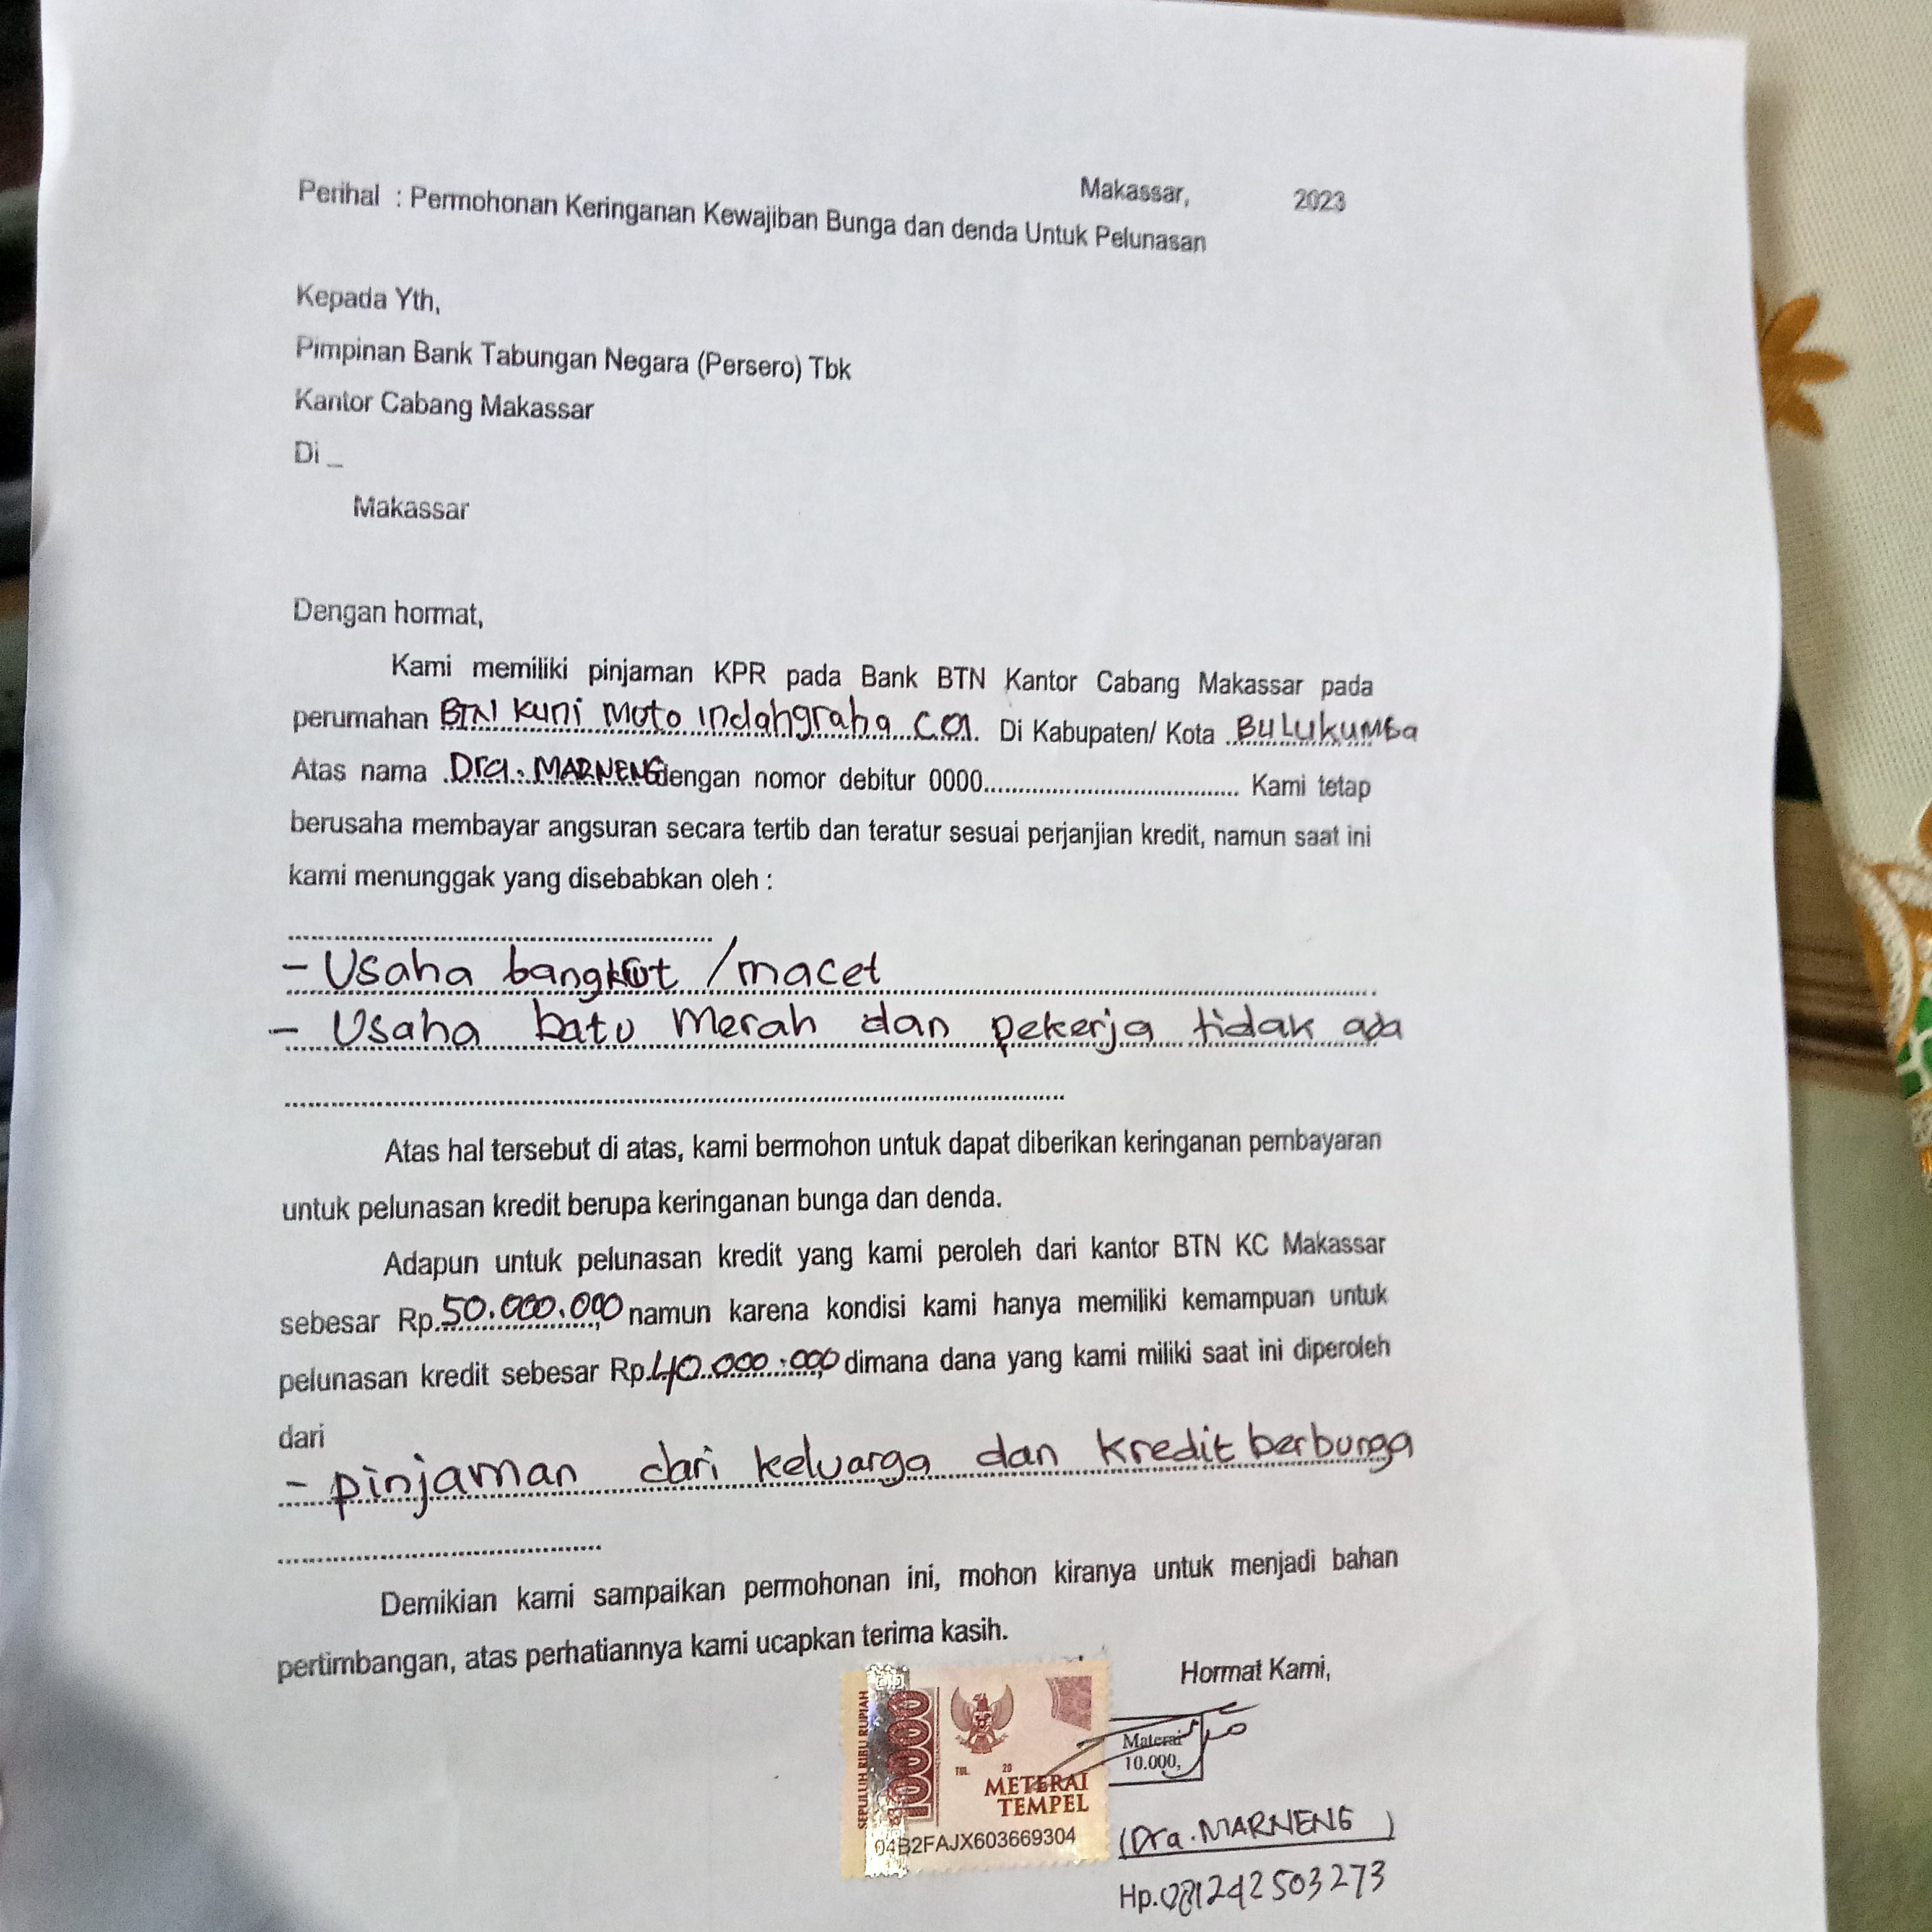 Makassar, 2023
Perihal : Permohonan Keringanan Kewajiban Bunga dan denda Untuk Pelunasan
Kepada Yth,
Pimpinan Bank Tabungan Negara (Persero) Tbk
Kantor Cabang Makassar
Di _
Makassar
Dengan hormat,
Kami memiliki pinjaman KPR pada Bank BTN Kantor Cabang Makassar pada
perumahan BTN Kuni Moto indahgraha Di Kabupaten/ Kota BULukuMba
Atas nama Dra. MARNENG dengan nomor debitur 0000........................................ Kami tetap
berusaha membayar angsuran secara tertib dan teratur sesuai perjanjian kredit, namun saat ini
kami menunggak yang disebabkan oleh :
- Usaha bangkrut /macet
- Usaha batu Merah dan pekerja tidak ada
Atas hal tersebut di atas, kami bermohon untuk dapat diberikan keringanan pembayaran
untuk pelunasan kredit berupa keringanan bunga dan denda.
Adapun untuk pelunasan kredit yang kami peroleh dari kantor BTN KC Makassar
sebesar Rp.50.000.000 namun karena kondisi kami hanya memiliki kemampuan untuk
pelunasan kredit sebesar Rp.40.000.000 dimana dana yang kami miliki saat ini diperoleh
dari
- pinjaman dari keluarga dan kredit berbunga
Demikian kami sampaikan permohonan ini, mohon kiranya untuk menjadi bahan
pertimbangan, atas perhatiannya kami ucapkan terima kasih.
Hormat Kami,
Materai
10.000,
SEPULUH RIBU RUPIAH
10000
TGL. 20
METERAI
TEMPEL
04B2FAJX603669304
(Dra. MARNENG )
Hp.081242503273